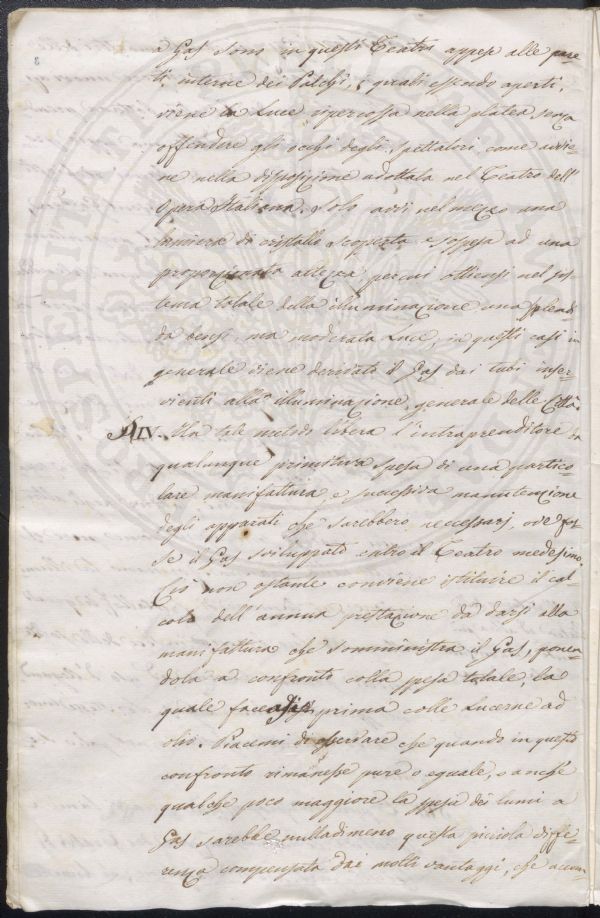 a Gas sono in questi Teatri appese alle pare
ti interne dei Palchi, i quali essendo aperti,
viene la Luce ripercossa nella platea senza
offendere gli occhi degli spettatori, come avvie-
ne nella disposizione adottata nel Teatro dell'
Opera Italiana. Solo avvi nel mezzo una
lumiera di cristallo scoperta e sospesa ad una
proporzionata altezza, per cui ottiensi nel sis-
tema totale della illuminazione una splendi
da bensì, ma moderata Luce, in questi casi in
generale viene derivato il Gas dai tubi inser-
vienti alla illuminazione generale delle Città.
XIV. Un tale metodo libera l'intraprenditore da
qualunque primitiva spesa di una partico-
lare manifattura, e successiva manutenzione
degli apparati che sarebbero necessarj, ove fos
se il Gas sviluppato entro il Teatro medesimo.
Ciò non ostante conviene istituire il cal
colo dell'annua prestazione da darsi alla
manifattura che somministra il Gas, ponen
dola a confronto colla spesa totale, la
quale faceasi prima colle Lucerne ad
olio. Piacemi di osservare che quando in questo
confronto rimanesse pure o eguale, o anche
qualche poco maggiore la spesa dei lumi a
Gas sarebbe nulladimeno questa picciola diffe-
renza compensata dai molti vantaggi, che